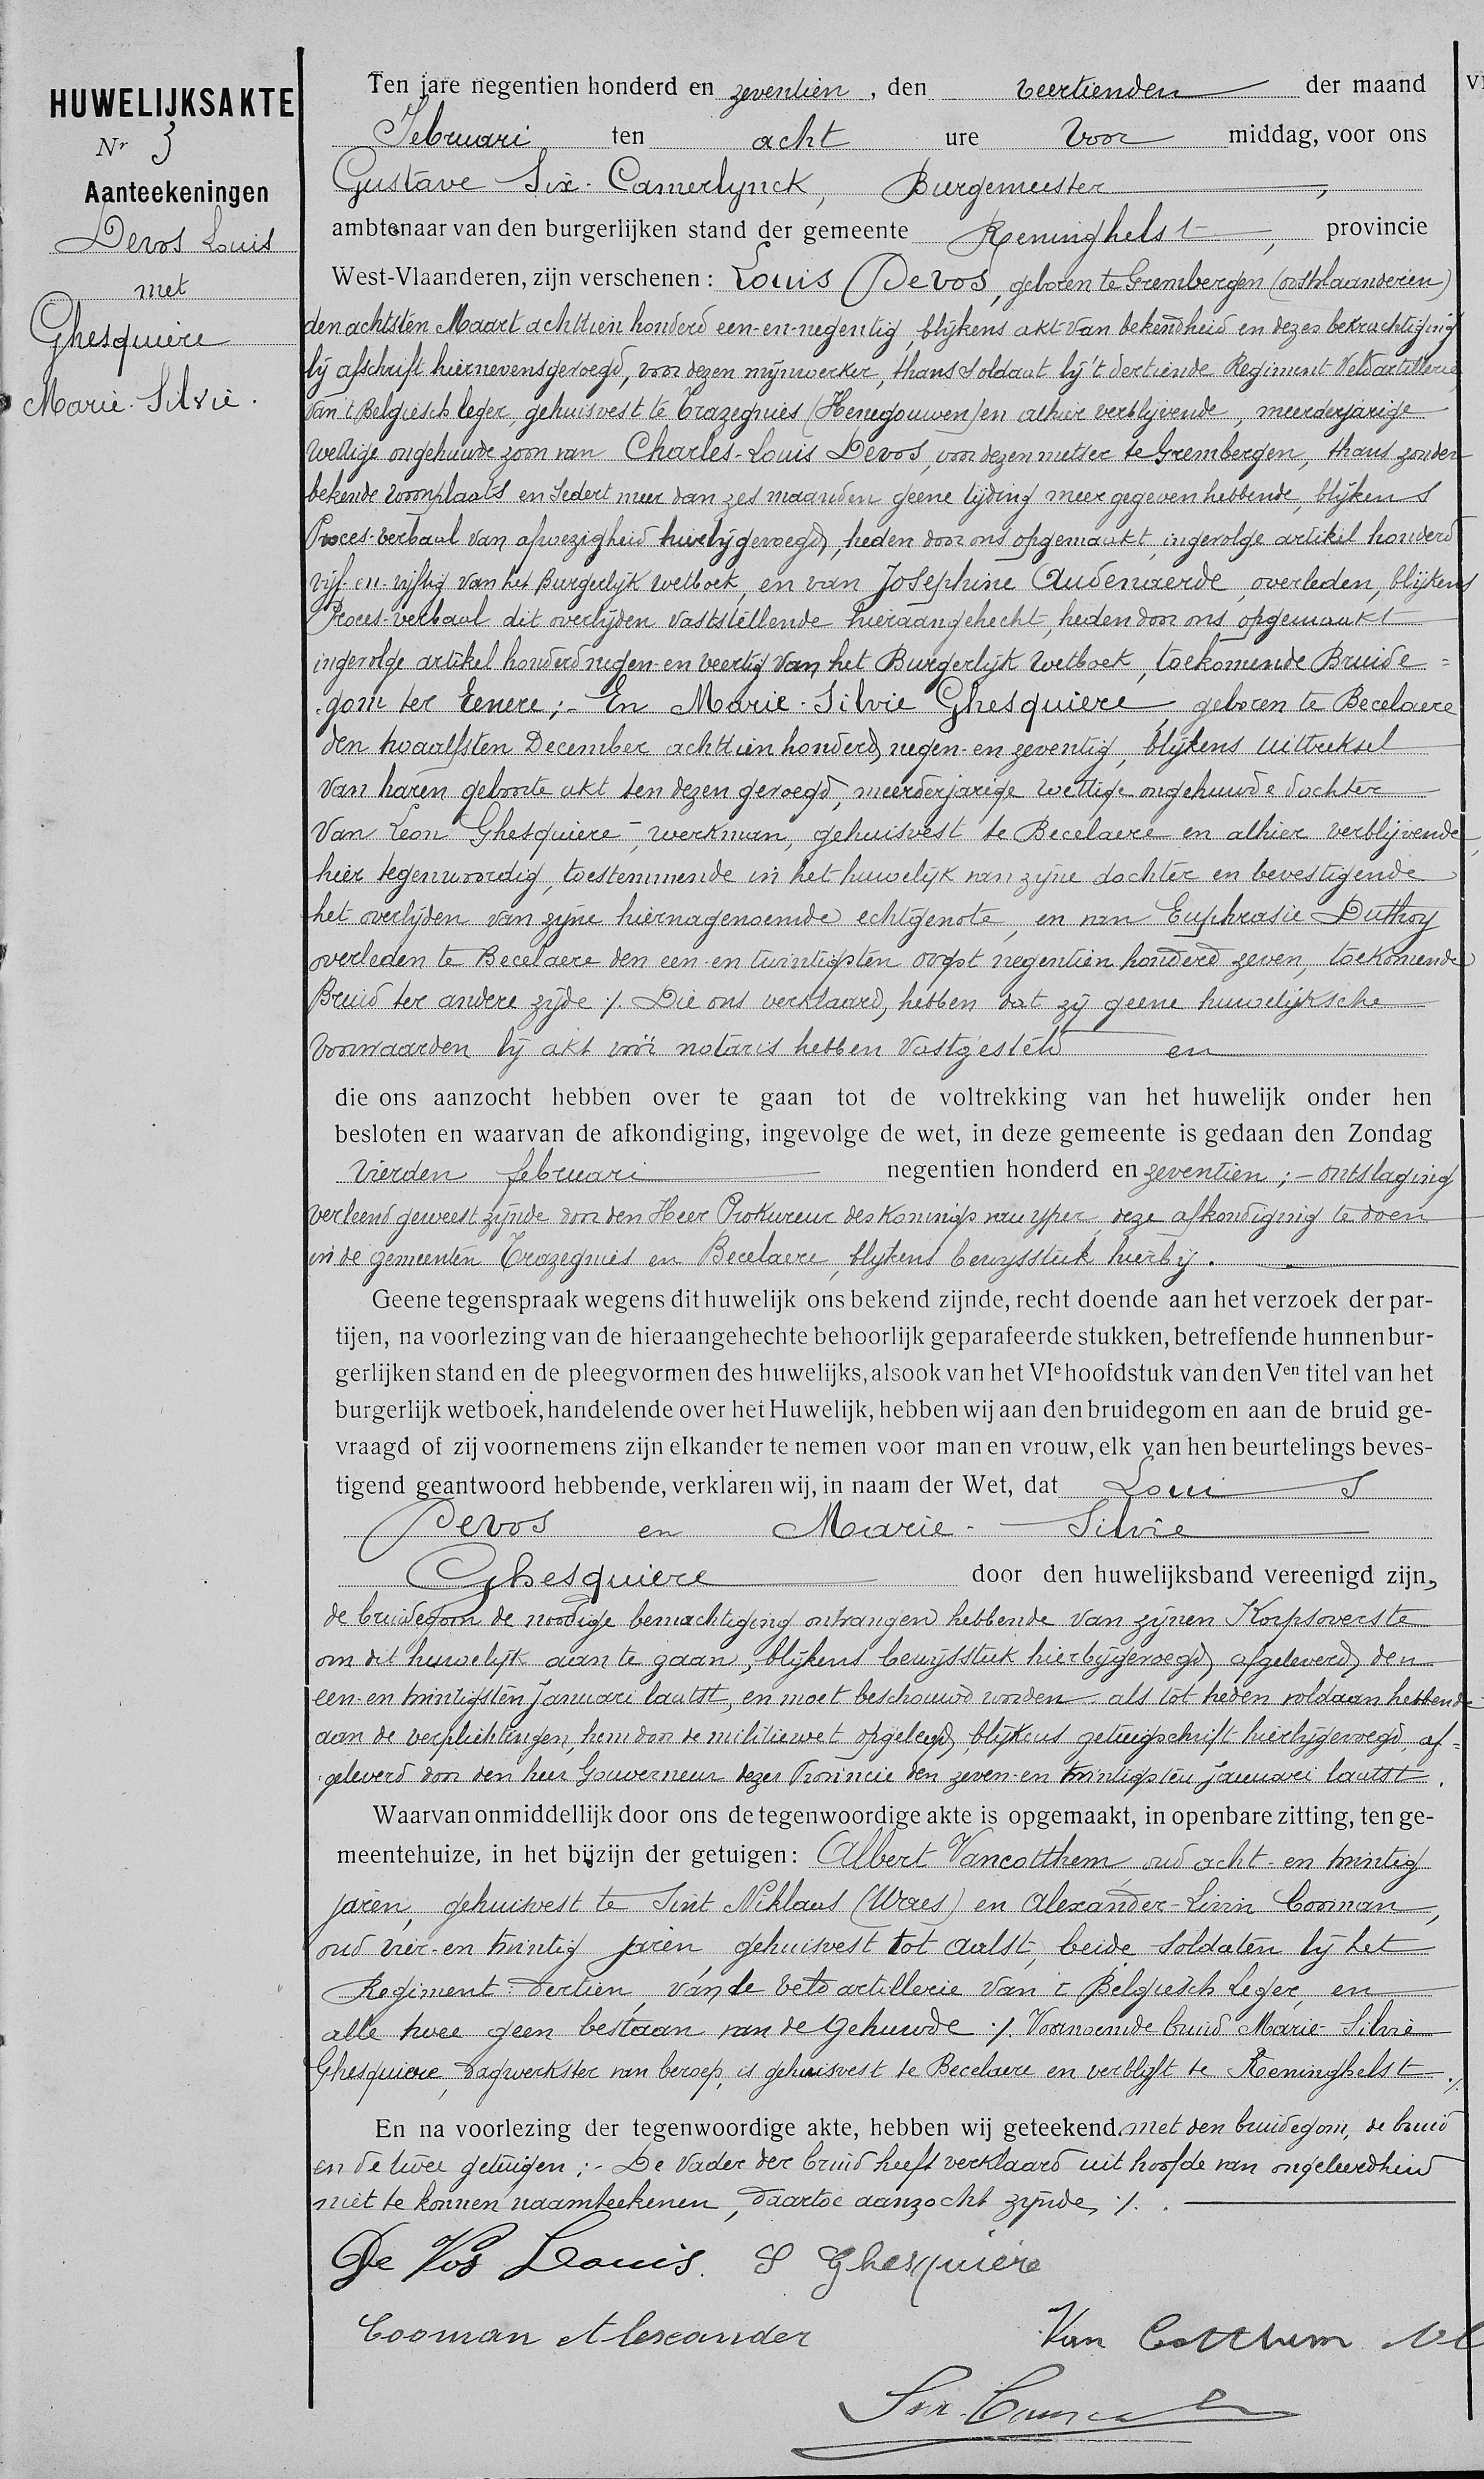 HUWELIJKSAKTE
Nr 3
Aanteekeningen
Devos Louis
met
Ghesquiere
Marie-Silvie.
Ten jare negentien honderd en zeventien, den veertienden der maand
Februari ten acht ure voor middag, voor ons
Gustave Six-Camerlynck, Burgemeester,
ambtenaar van den burgerlijken stand der gemeente Reninghelst, provincie
West-Vlaanderen, zijn verschenen: Louis Devos, geboren te Grembergen (oostvlaanderen)
den achtsten Maart achttien honderd een-en-negentig, blijkens akt van bekendheid en dezes bekrachtiging
bij afschrift hiernevensgevoegd, voor dezen mynwerker, thans soldaat bij 't dertiende Regiment Veldartillerie
van 't Belgisch leger, gehuisvest te Trazegnies (Henegouwen) en alhier verblijvende, meerderjarige
wettige ongehuwde zoon van Charles-Louis Devos, voor dezen metser te Grembergen, thans zonder
bekende woonplaats en sedert meer dan zes maanden geene tijding meer gegeven hebbende, blijkens
Proces-verbaal van afwezigheid hierbijgevoegd, heden door ons opgemaakt, ingevolge artikel honderd
vijf-en-vijftig van het Burgerlijk wetboek, en van Josephine Audenaerde, overleden, blijkens
Proces-verbaal dit overlijden vaststellende hieraangehecht, heden door ons opgemaakt
ingevolge artikel honderd negen-en veertig van het Burgerlijk Wetboek, toekomende Bruide=
gom ter eenere;- En Marie-Silvie Ghesquiere, geboren te Becelaere
den twaalfsten December achttien honderd negen-en zeventig, blijkens uittreksel
van haren geboorte akt ten dezen gevoegd, meerderjarige wettige ongehuwde dochter
van Leon Ghesquiere, werkman, gehuisvest te Becelaere en alhier verblijvende,
hier tegenwoordig, toestemmende in het huwelijk van zijne dochter en bevestigende
het overlijden van zijne hiernagenoemde echtgenote, en van Euphrasie Duthoy
overleden te Becelaere den een-en twintigsten oogst negentien honderd zeven, toekomende
Bruid ter andere zijde ./. Die ons verklaard, hebben dat zij geene huwelijksche
voorwaarden bij akt vóór notaris hebben vastgesteld en
die ons aanzocht hebben over te gaan tot de voltrekking van het huwelijk onder hen
besloten en waarvan de afkondiging, ingevolge de wet, in deze gemeente is gedaan den Zondag
vierden februari negentien honderd en zeventien;- ontslaging
verleend geweest zijnde door den Heer Prokureur des Konings van yper, deze afkondiging te doen
in de gemeenten Trazegnies en Becelaere, blijkens bewijsstuk hierbij.
Geene tegenspraak wegens dit huwelijk ons bekend zijnde, recht doende aan het verzoek der par-
tijen, na voorlezing van de hieraangehechte behoorlijk geparafeerde stukken, betreffende hunnen bur-
gerlijken stand en de pleegvormen des huwelijks, alsook van het VIe hoofdstuk van den Ven titel van het
burgerlijk wetboek, handelende over het Huwelijk, hebben wij aan den bruidegom en aan de bruid ge-
vraagd of zij voornemens zijn elkander te nemen voor man en vrouw, elk van hen beurtelings beves-
tigend geantwoord hebbende, verklaren wij, in naam der Wet, dat Louis
Devos en Marie-Silvie
Ghesquiere door den huwelijksband vereenigd zijn,
de bruidegom de noodige bemachtiging ontvangen hebbende van zijnen Korpsoverste
om dit huwelijk aan te gaan, blijkens bewijsstuk hierbijgevoegd, afgeleverd, den
een-en twintigsten Januari laatst, en moet beschouwd worden als tot heden voldaan hebbende
aan de verplichtingen, hem door de militiewet opgelegd, blijkens getuigschrift hierbijgevoegd, af=
geleverd door den heer Gouverneur dezer Provincie den zeven-en twintigsten januari laatst.
Waarvan onmiddellijk door ons de tegenwoordige akte is opgemaakt, in openbare zitting, ten ge-
meentehuize, in het bijzijn der getuigen: Albert Vancotthem, oud acht-en twintig
jaren, gehuisvest te Sint Niklaas (Waes) en Alexander-Livin Cooman,
oud vier-en twintig jaren, gehuisvest tot Aalst, beide soldaten bij het
Regiment dertien, van de veld artillerie van 't Belgisch Leger, en
alle twee geen bestaan van de gehuwde ./. Voornoemde bruid Marie-Silvie
Ghesquiere, dagwerkster van beroep, is gehuisvest te Becelaere en verblijft te Reninghelst ./.
En na voorlezing der tegenwoordige akte, hebben wij geteekend met den bruidegom, de bruid
en de twee getuigen;- De Vader der bruid heeft verklaard uit hoofde van ongeleerdheid
niet te konnen naamteekenen, daartoe aanzocht zijnde ./.
De Vos Louis. S Ghesquiere
Cooman Alexander Van Cotthem Al
Six-Camer